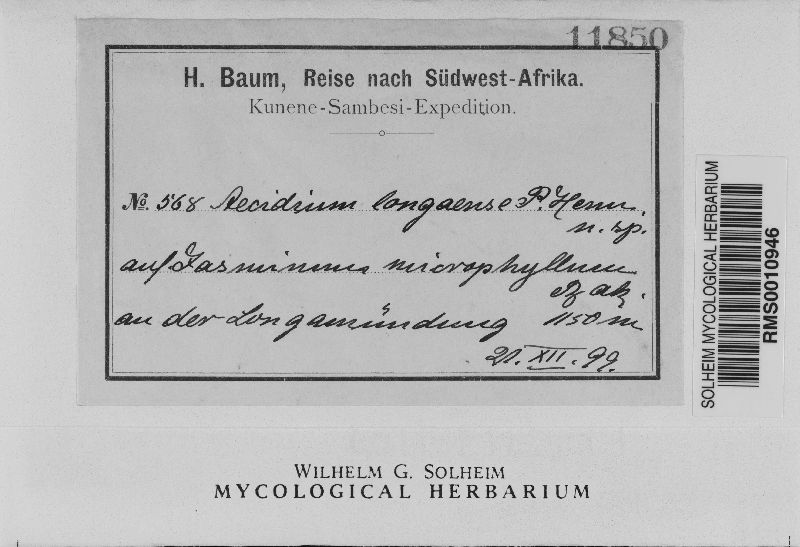 11850
H. Baum, Reise nach Südwest-Afrika.
Kunene-Sambesi-Expedition.
No. 568 Aecidium longaense P. Henn.
n. sp.
auf Jasminum microphyllum
Bak.
an der Longamündung 1150 m
21. XII. 99.
SOLHEIM MYCOLOGICAL HERBARIUM
RMS0010946
WILHELM G. SOLHEIM
MYCOLOGICAL HERBARIUM